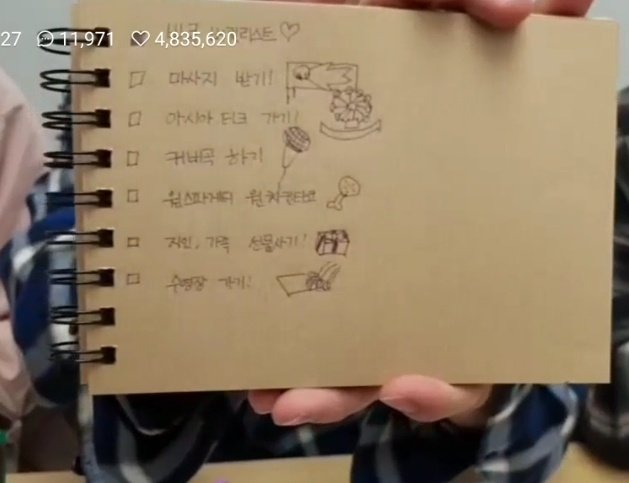 27 11,971 4,835,620
리스트♡
마사지 받기!
아시아 티크 가기!
커버곡 하기
원스파게티
지인, 가족 선물사기!
수영장 가기!